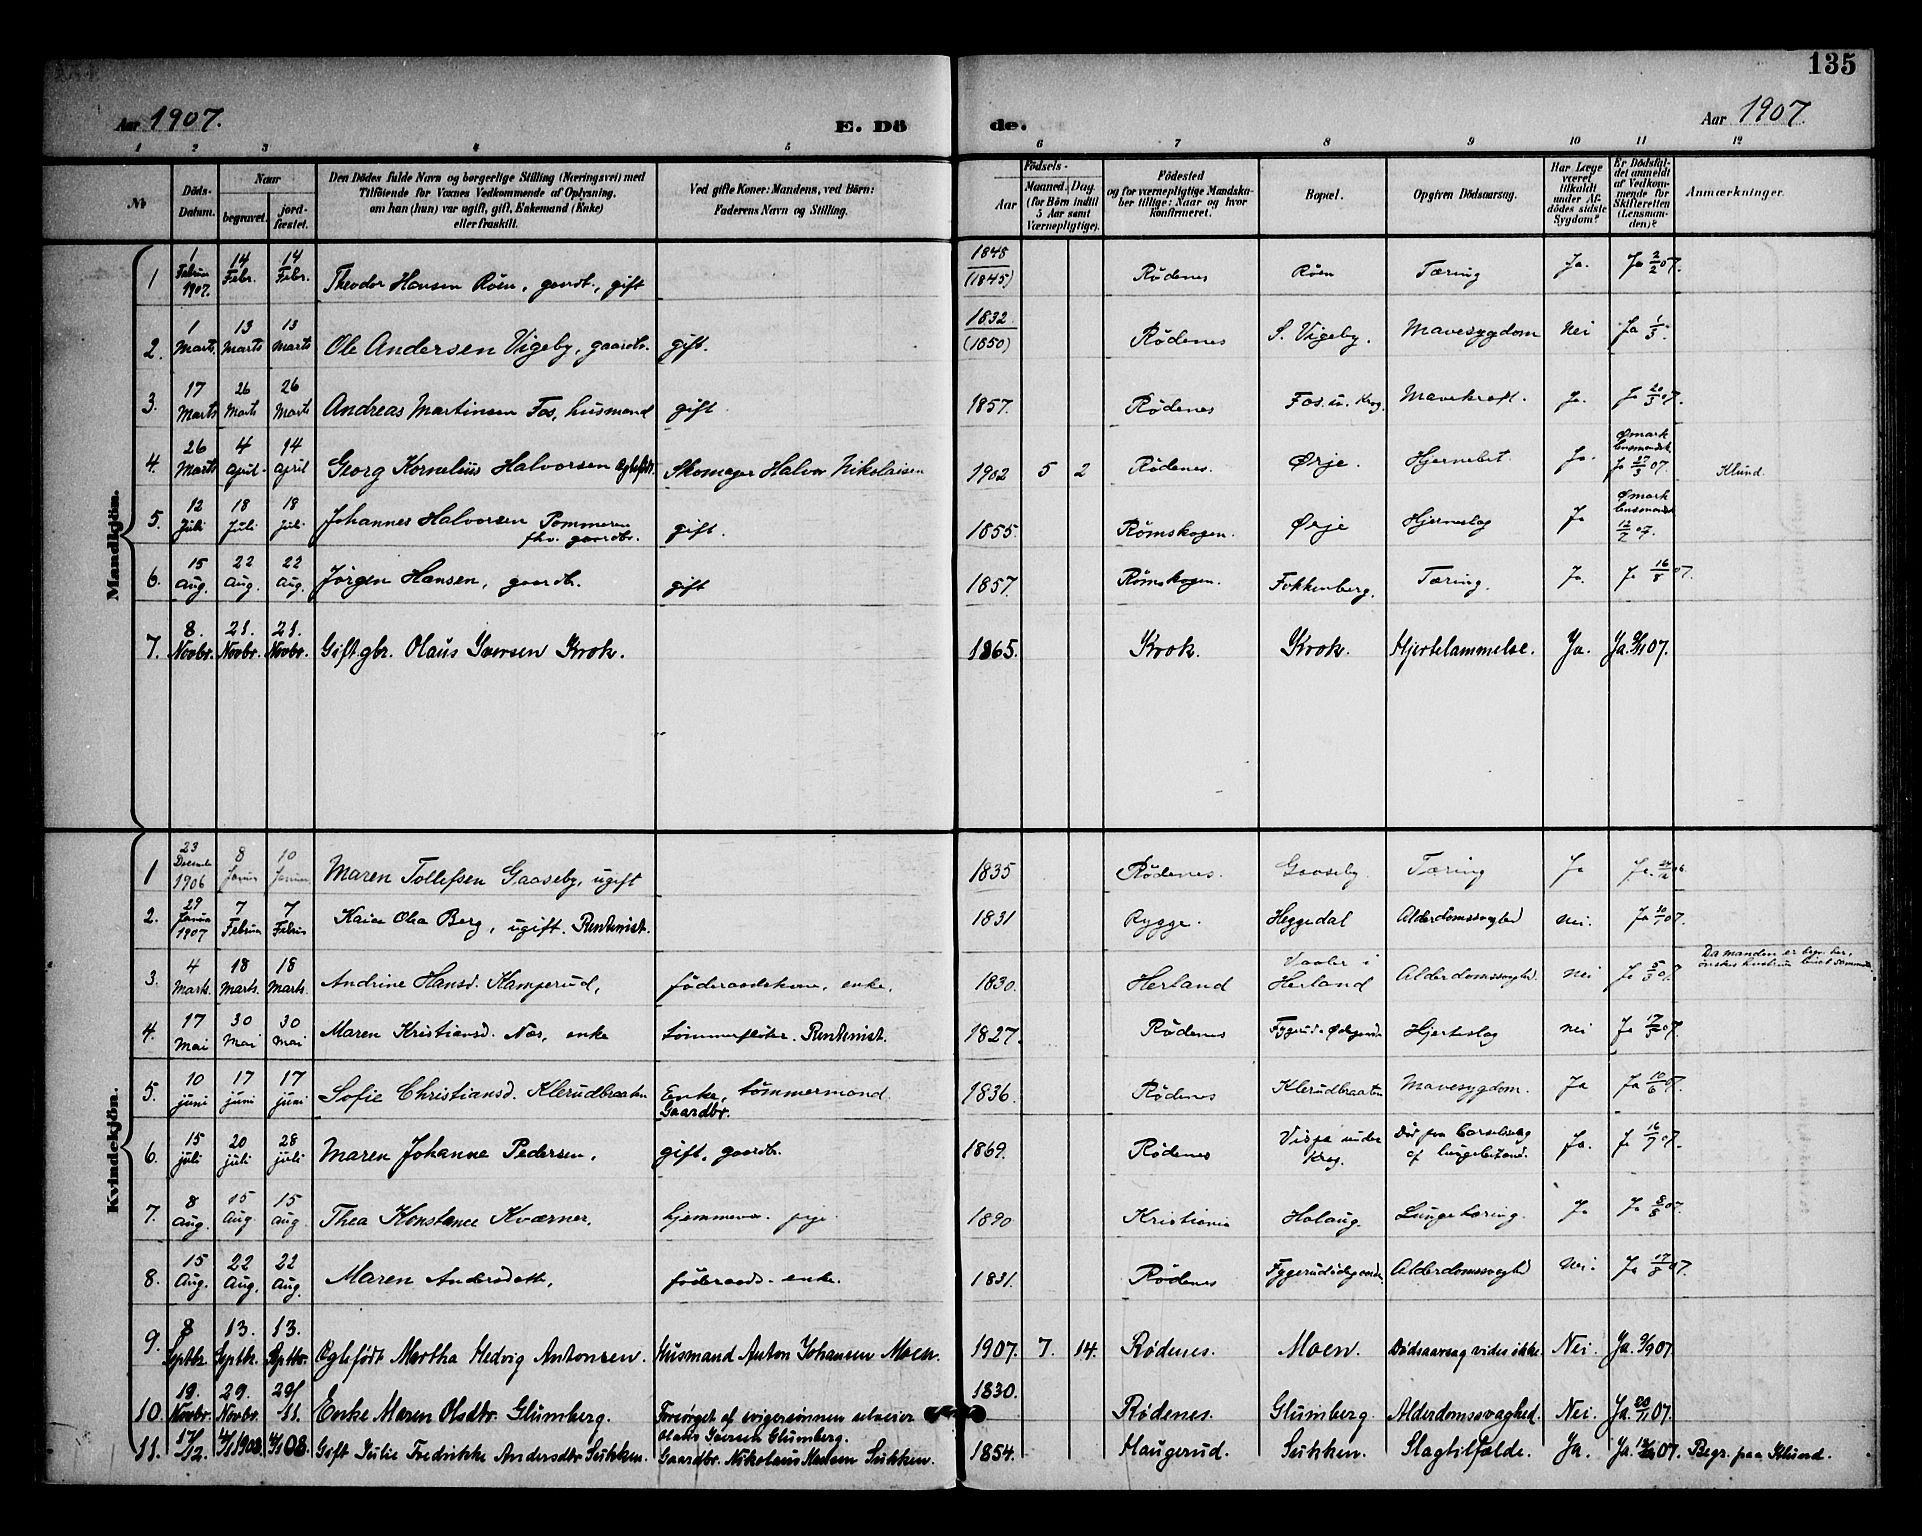 135
Aar 1907.
E. Dö
de.
Aar 1907.
1 2 3 4 5 6 7 8 9 10 11 12
No
Döds-Datum.
Naar
begravet.
jord-fæstet.
Den Dödes fulde Navn og borgerlige Stilling (Næringsvei) med
Tilföiende for Voxnes Vedkommende af Oplysning,
om han (hun) var ugift, gift, Enkemand (Enke)
eller fraskilt.
Ved gifte Koner: Mandens, ved Börn:
Faderens Navn og Stilling.
Födsels-
Aar
Maaned. Dag.
(for Börn indtil
5 Aar samt
Værnepligtige).
Födested
og for værnepligtige Mandska-
ber tillige: Naar og hvor
konfirmeret.
Bopæl.
Opgiven Dödsaarsag.
Har Læge
været
tilkaldt
under Af-
dödes sidste
Sygdom?
Er Dödsfal-
det anmeldt
af Vedkom-
mende for
Skifteretten
(Lensman-
den)?
Anmærkninger.
Mandkjön.
1 1 Februar 1907. 14 Febr. 14 Febr. Theodor Hansen Röen, gaardb., gift 1848 (1845) Rødenes Röen Tæring Ja. Ja 2/2 07.
2. 1 Marts. 13 Marts 13 Marts Ole Andersen Vigeby, gaardbr. gift. 1832 (1850) Rødenes S. Vigeby. Mavesygdom Nei Ja 1/3.
3. 17 Marts 26 Marts 26 Marts Andreas Martinsen Fos, husmand gift. 1857. Rødenes Fos. u. Krog. Mavekræft. Ja. Ja 20/3 07.
4. 26 Marts 4 April 14 April Georg Kornelius Halvorsen Ægtefødt. Skomager Halvor Nikolaisen 1902 5 2 Rødenes. Ørje. Hjernebet. Ja. Ømark lensmandsk. Ja 27/3 07. Klund.
5. 12 Juli 18 Juli 18 Juli Johannes Halvorsen Pommeren fhv. gaardbr. gift. 1855. Rømskogen. Ørje Hjerneslag Ja Ømark lensmandsk 12/7 07.
6. 15 Aug. 22 Aug. 22 Aug. Jørgen Hansen, gaardb. gift 1857. Rømskogen. Fokkenberg. Tæring. Ja. Ja 16/8 07.
7. 8. Novbr. 21. Novbr. 21. Novbr. Gift gbr. Olaus Iversen Krok. 1865. Krok. Krok. Hjertelammelse. Ja. Ja. 9/11 07.
Kvindekjön.
1 23 Decembr 1906 8 Januar 10 Januar Maren Tollefsen Gaaseby, ugift 1835 Rødenes. Gaaseby. Tæring Ja Ja. 24/12 06.
2. 29 Januar 1907 7 Februar 7 Februar Kaia Olea Berg, ugift. Rentenist. 1831 Rygge. Heggedal Alderdomssvaghed nei. Ja 30/1 07.
3. 4 Marts. 18 Marts. 18 Marts. Andrine Hansd. Kamperud, föderaadskone, enke. 1830. Herland Vaaler i Herland Alderdomssvaghed nei Ja 5/3 07. Da manden er begr. her, ønskes hustrun
4. 17 Mai 30 Mai 30 Mai Maren Kristiansd. Næs, enke tømmerfløter. Rentenist. 1827. Rødenes Hjerteslag nei Ja 17/5 07.
5. 10 juni 17 juni 17 juni Sofie Christiansd. Klerudbraaten Enke, tømmermand. Gaardbr. 1836. Rødenes Klerudbraaten Mavesygdom. Ja Ja 10/6 07.
6. 15 juli 20 juli 28 juli Maren Johanne Pedersen, gift, gaardb. 1869. Rødenes Vispa under Krog. Død paa Barselseng af lungebetænd. Ja. Ja 16/7 07
7. 8 Aug. 15 Aug 15 aug Thea Konstance Kværner, hjemmev. pige 1890 Kristiania Holaug. Lungetæring. Ja Ja 8/8 07.
8. 15 Aug. 22 Aug. 22 Aug. Maren Andersdatt, föderaads-enke. 1831. Rødenes Alderdomssvaghed Nei. Ja 17/8 07.
9. 8 Septbr. 13. Septbr. 13. Septbr. Ægtefødt Martha Hedvig Antonsen. Husmand Anton Johansen Moen. 1907. 7. 14. Rødenes. Moen. Dødsaarsag vides ikke. Nei. Ja. 9/9 07.
10. 19. Novbr. 29. Novbr. 29/11. Enke Maren Olsdbr. Glumberg. Forsørget af svigersønnen selveier Olaus Iversen Glumberg. 1830. Rødenes. Glumberg. Alderdomssvaghed. Nei. Ja. 20/11 07.
11. 17/12. 4/1 1908. 4/1 08. Gift Julie Fredrikke Andersdbr Sukken. Gaardbr. Nikolaus Madsen Sukken. 1854. Haugerud. Sukken. Slagtilfælde. Ja. Ja. 18/12 07. Begr. paa Klund.